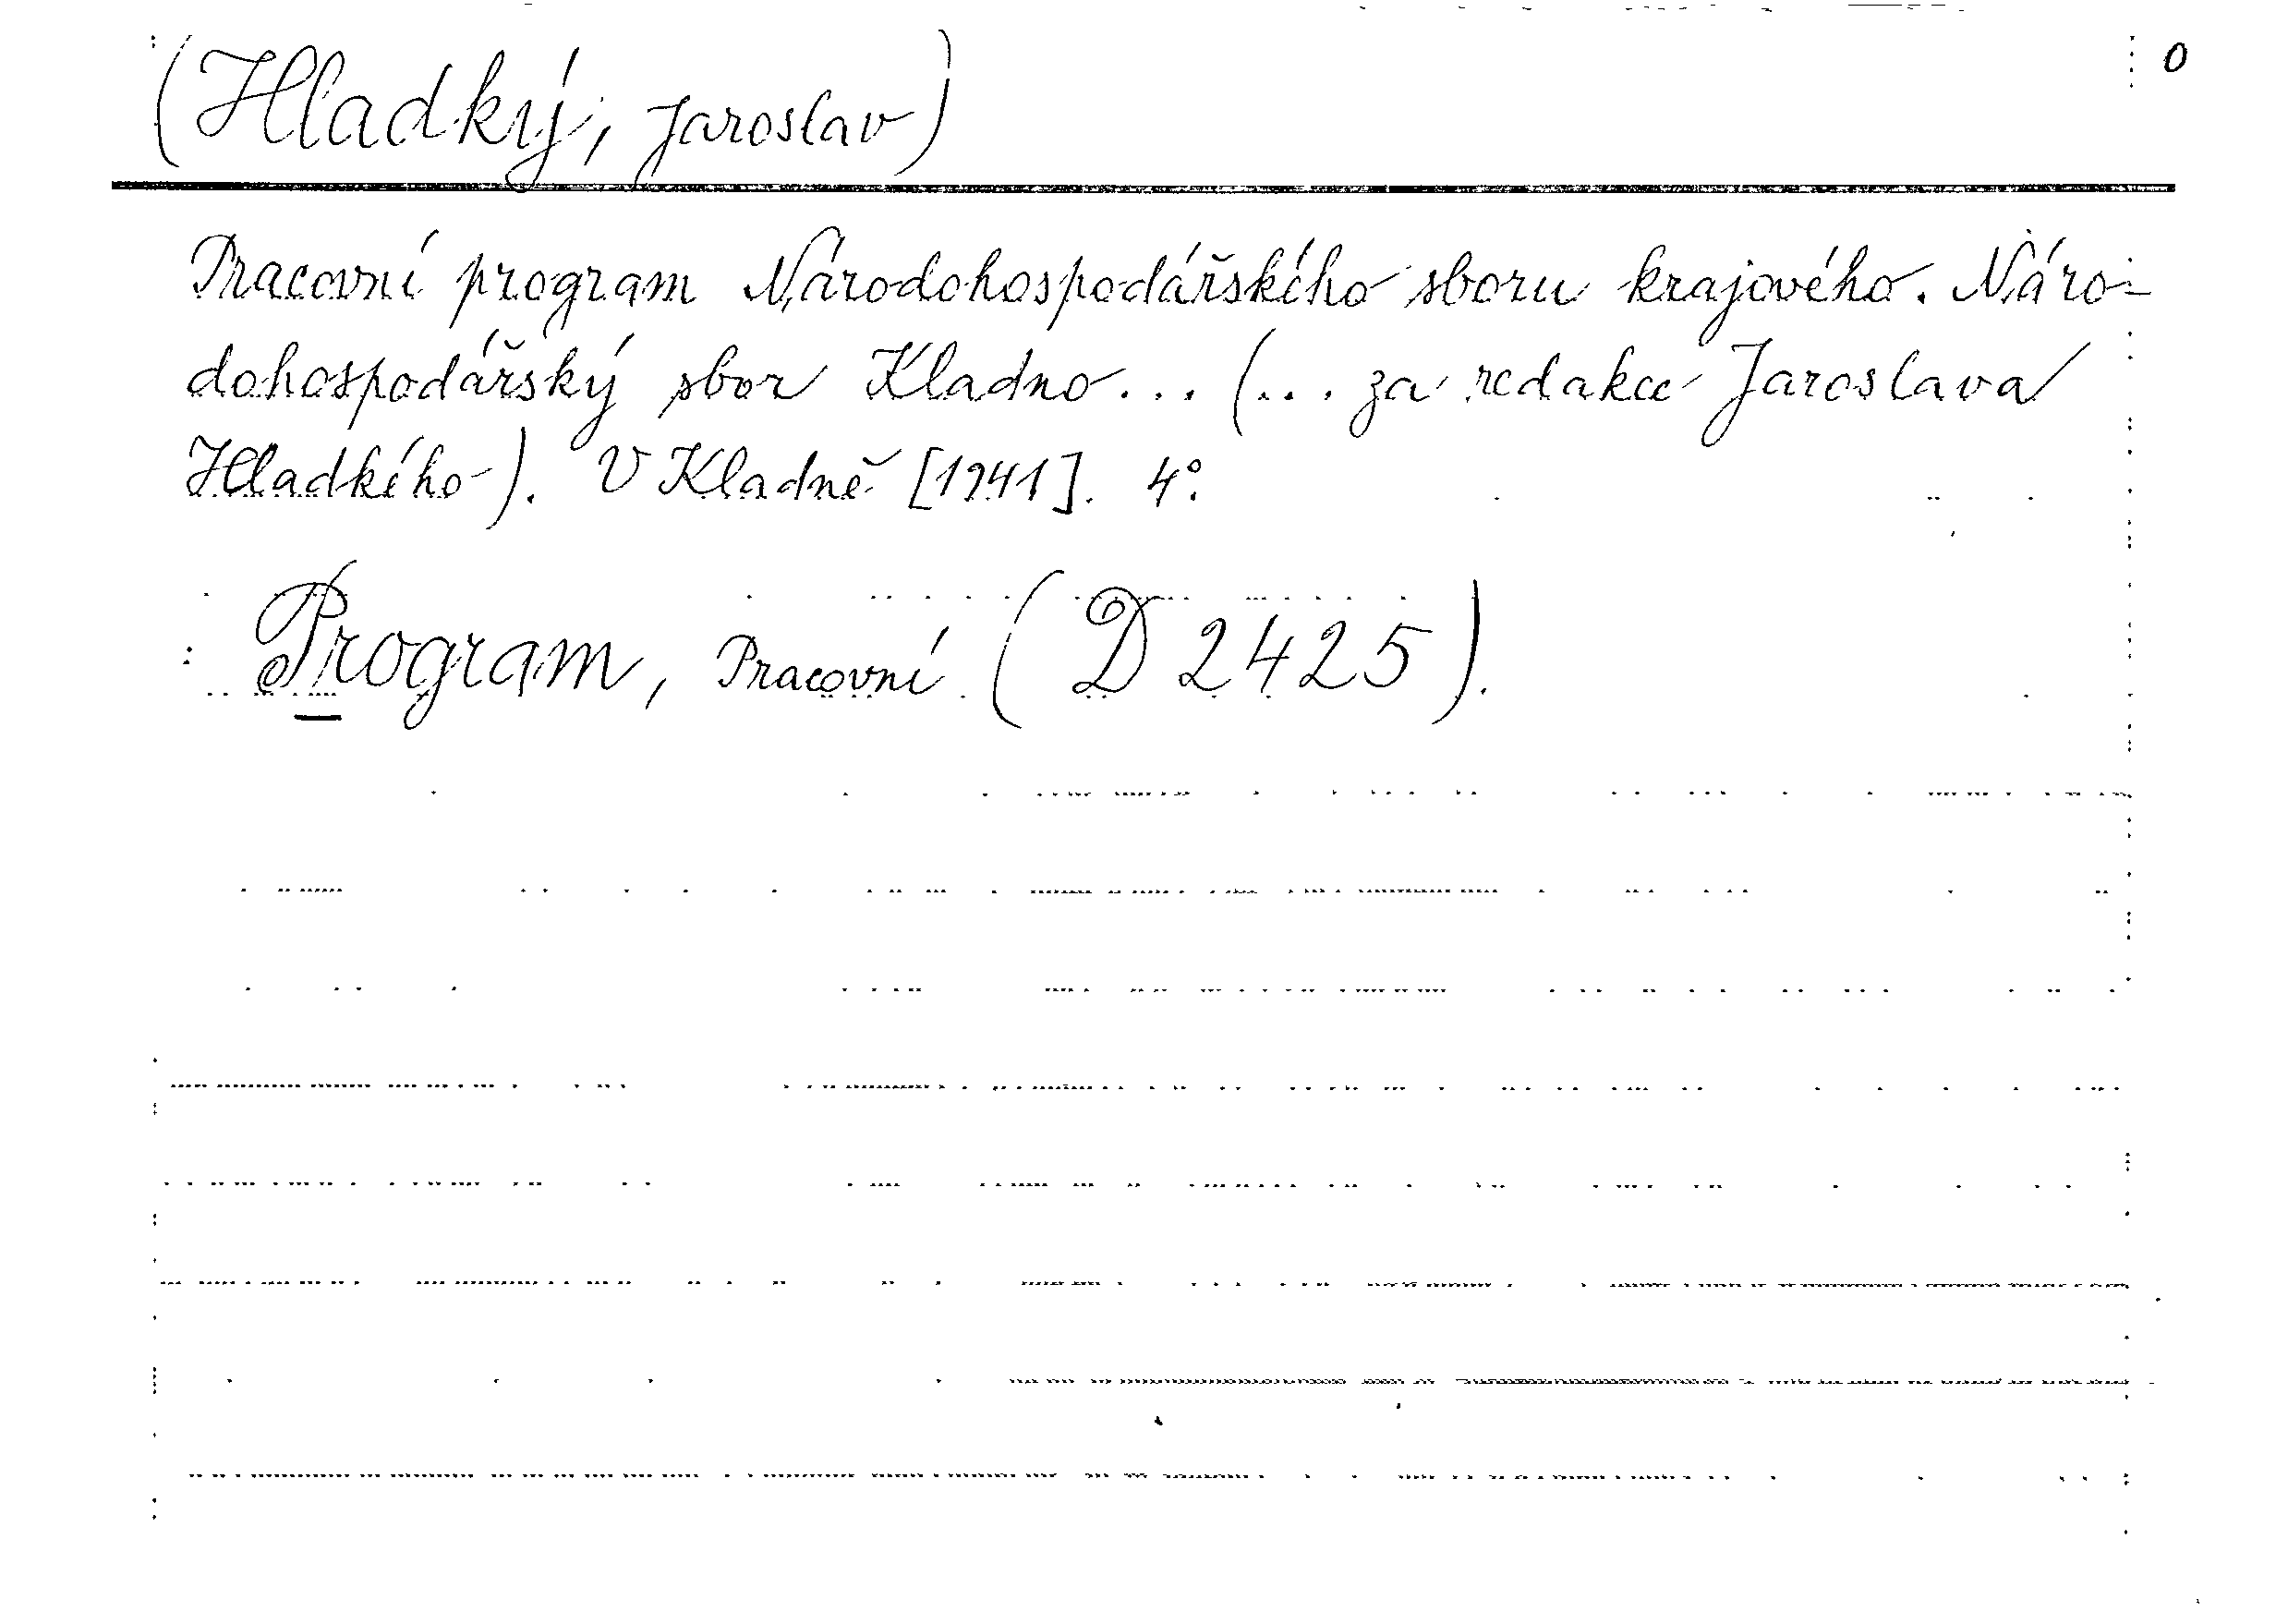 (Hladký, Jaroslav) 0
Pracovní program Národohospodářského sboru krajového. Náro-
dohospodářský sbor Kladno... (... za redakce Jaroslava
Hladkého). V Kladně [1941]. 4°.
Program, Pracovní (D 2425).